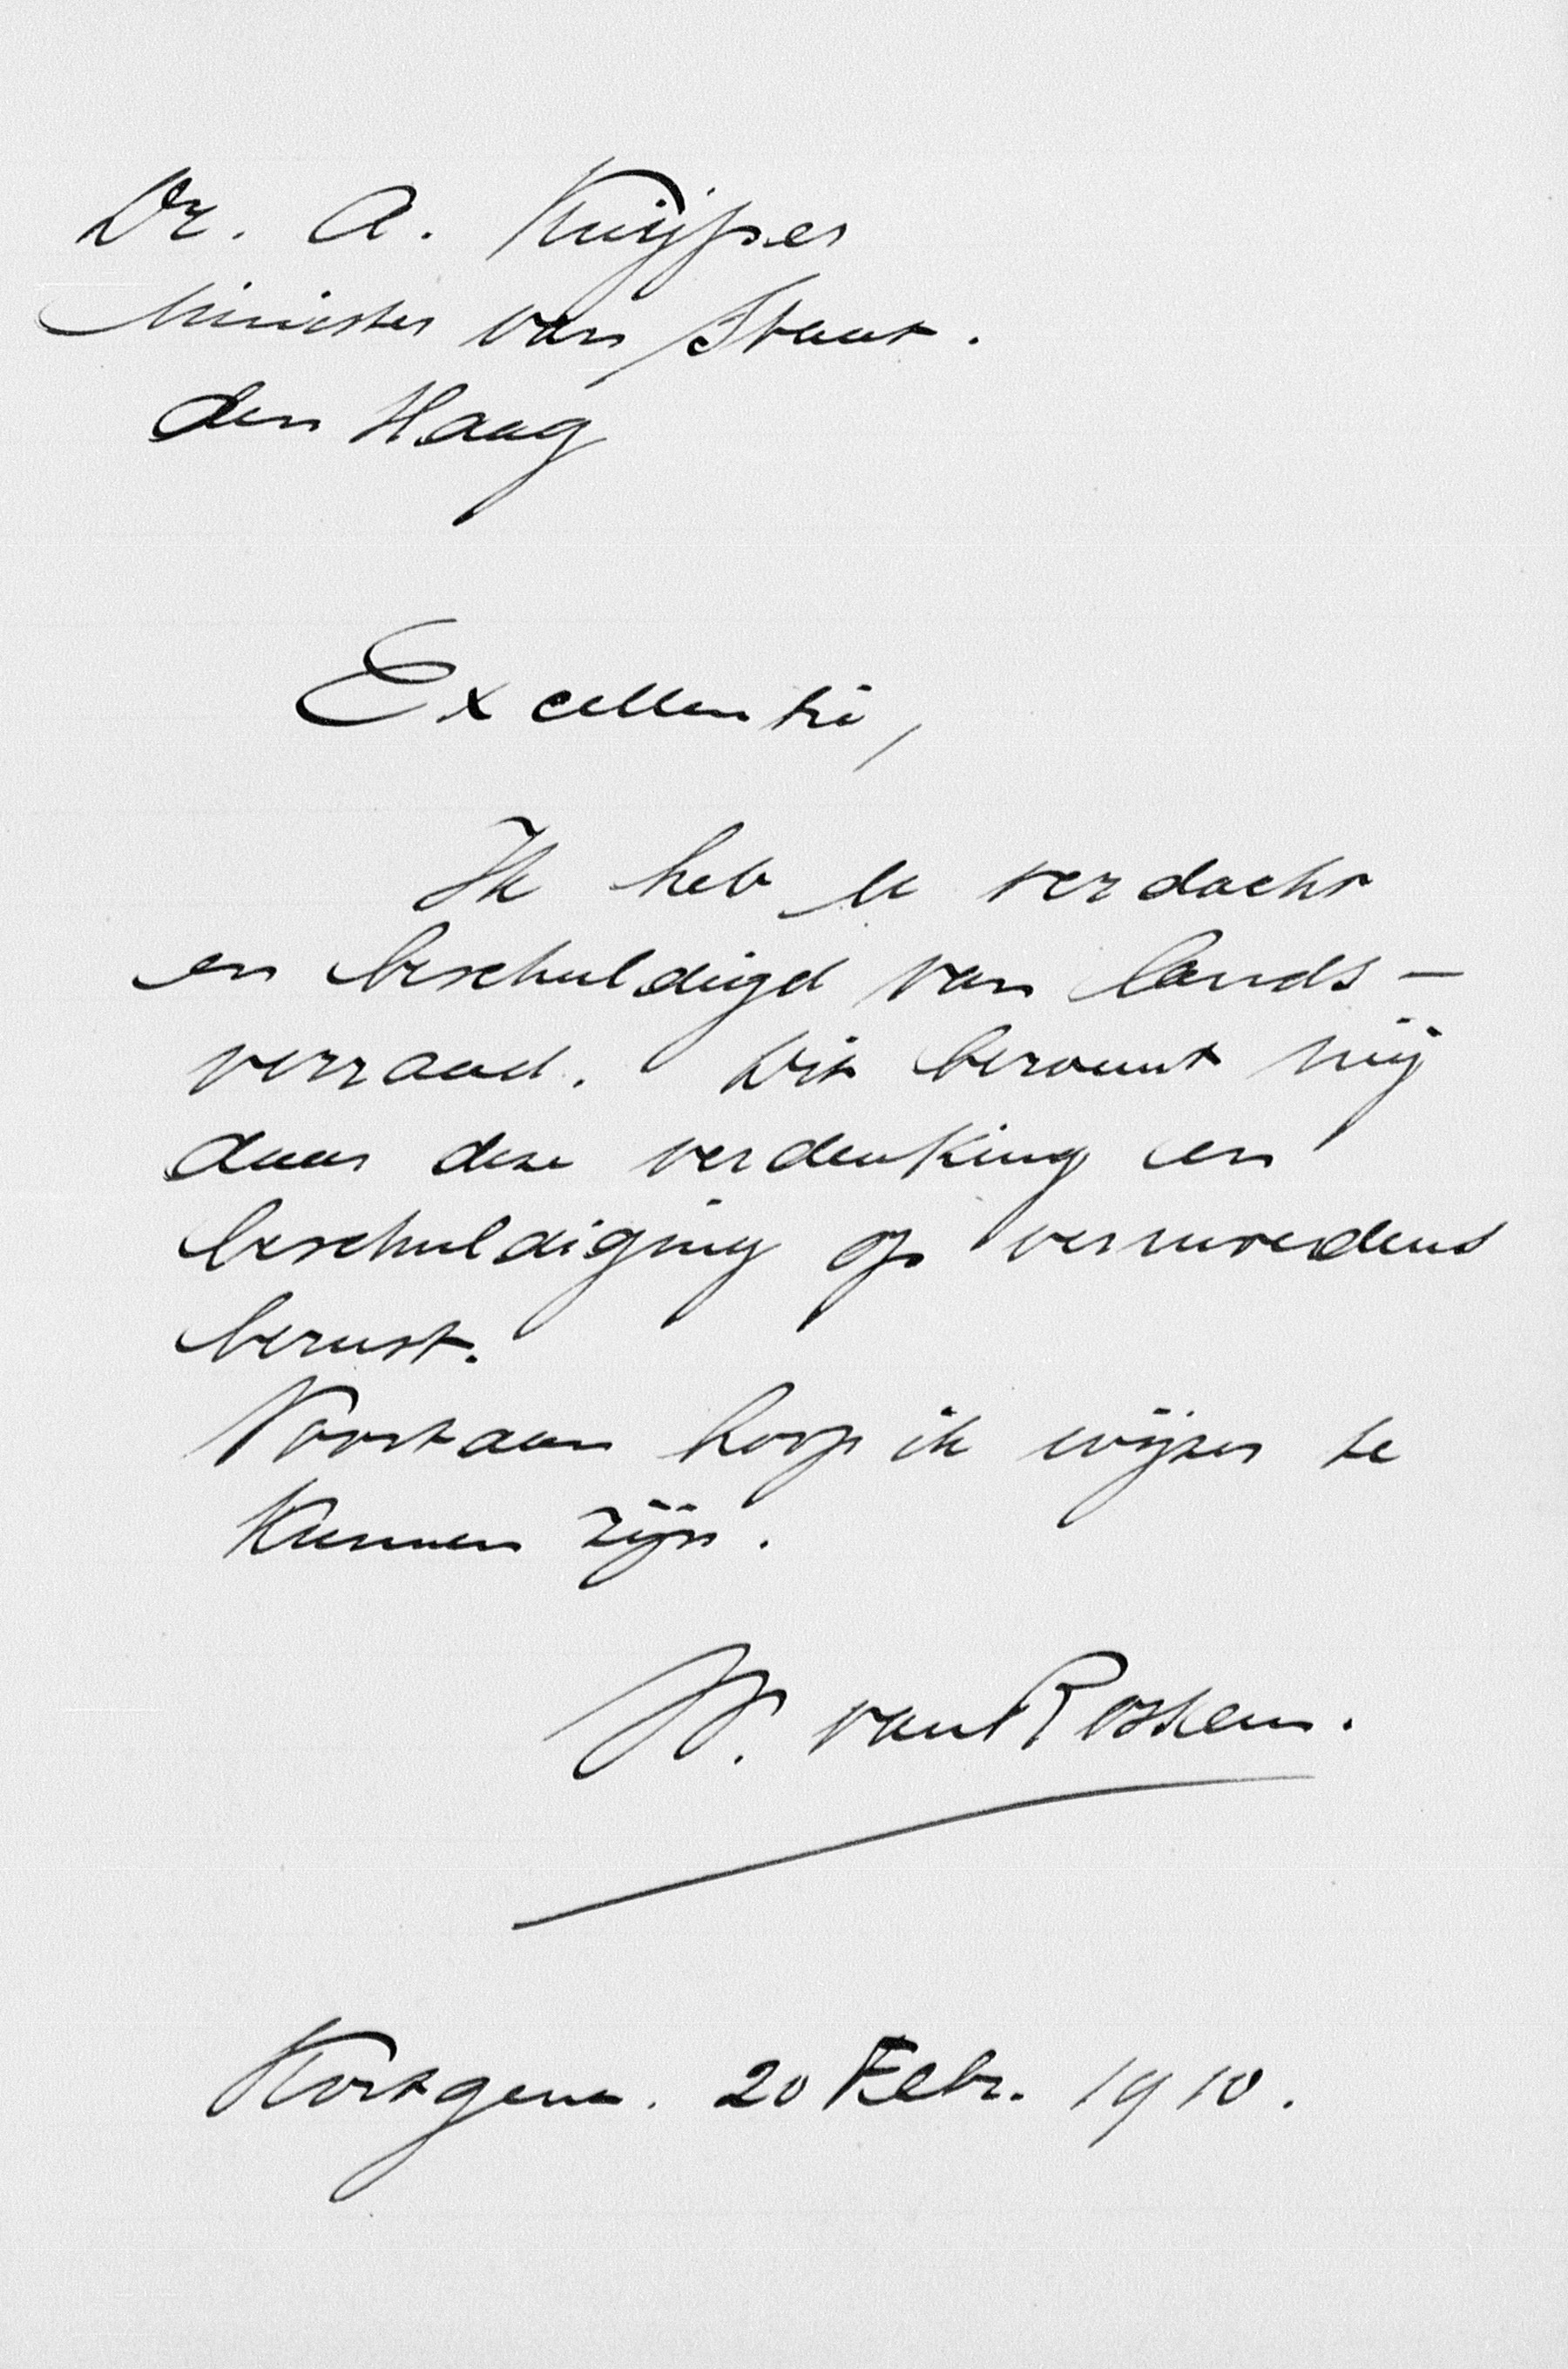 Dr. A. Kuijper
Minister van Staat.
den Haag
Excellentie,
Ik heb U verdacht
en beschuldigd van lands-
verraad. Dit berouwt mij
daar deze verdenking en
beschuldiging op vermoedens
berust.
Voortaan hoop ik wijzer te
kunnen zijn.
W. van Rossem.
Kortgene. 20 Febr. 1910.